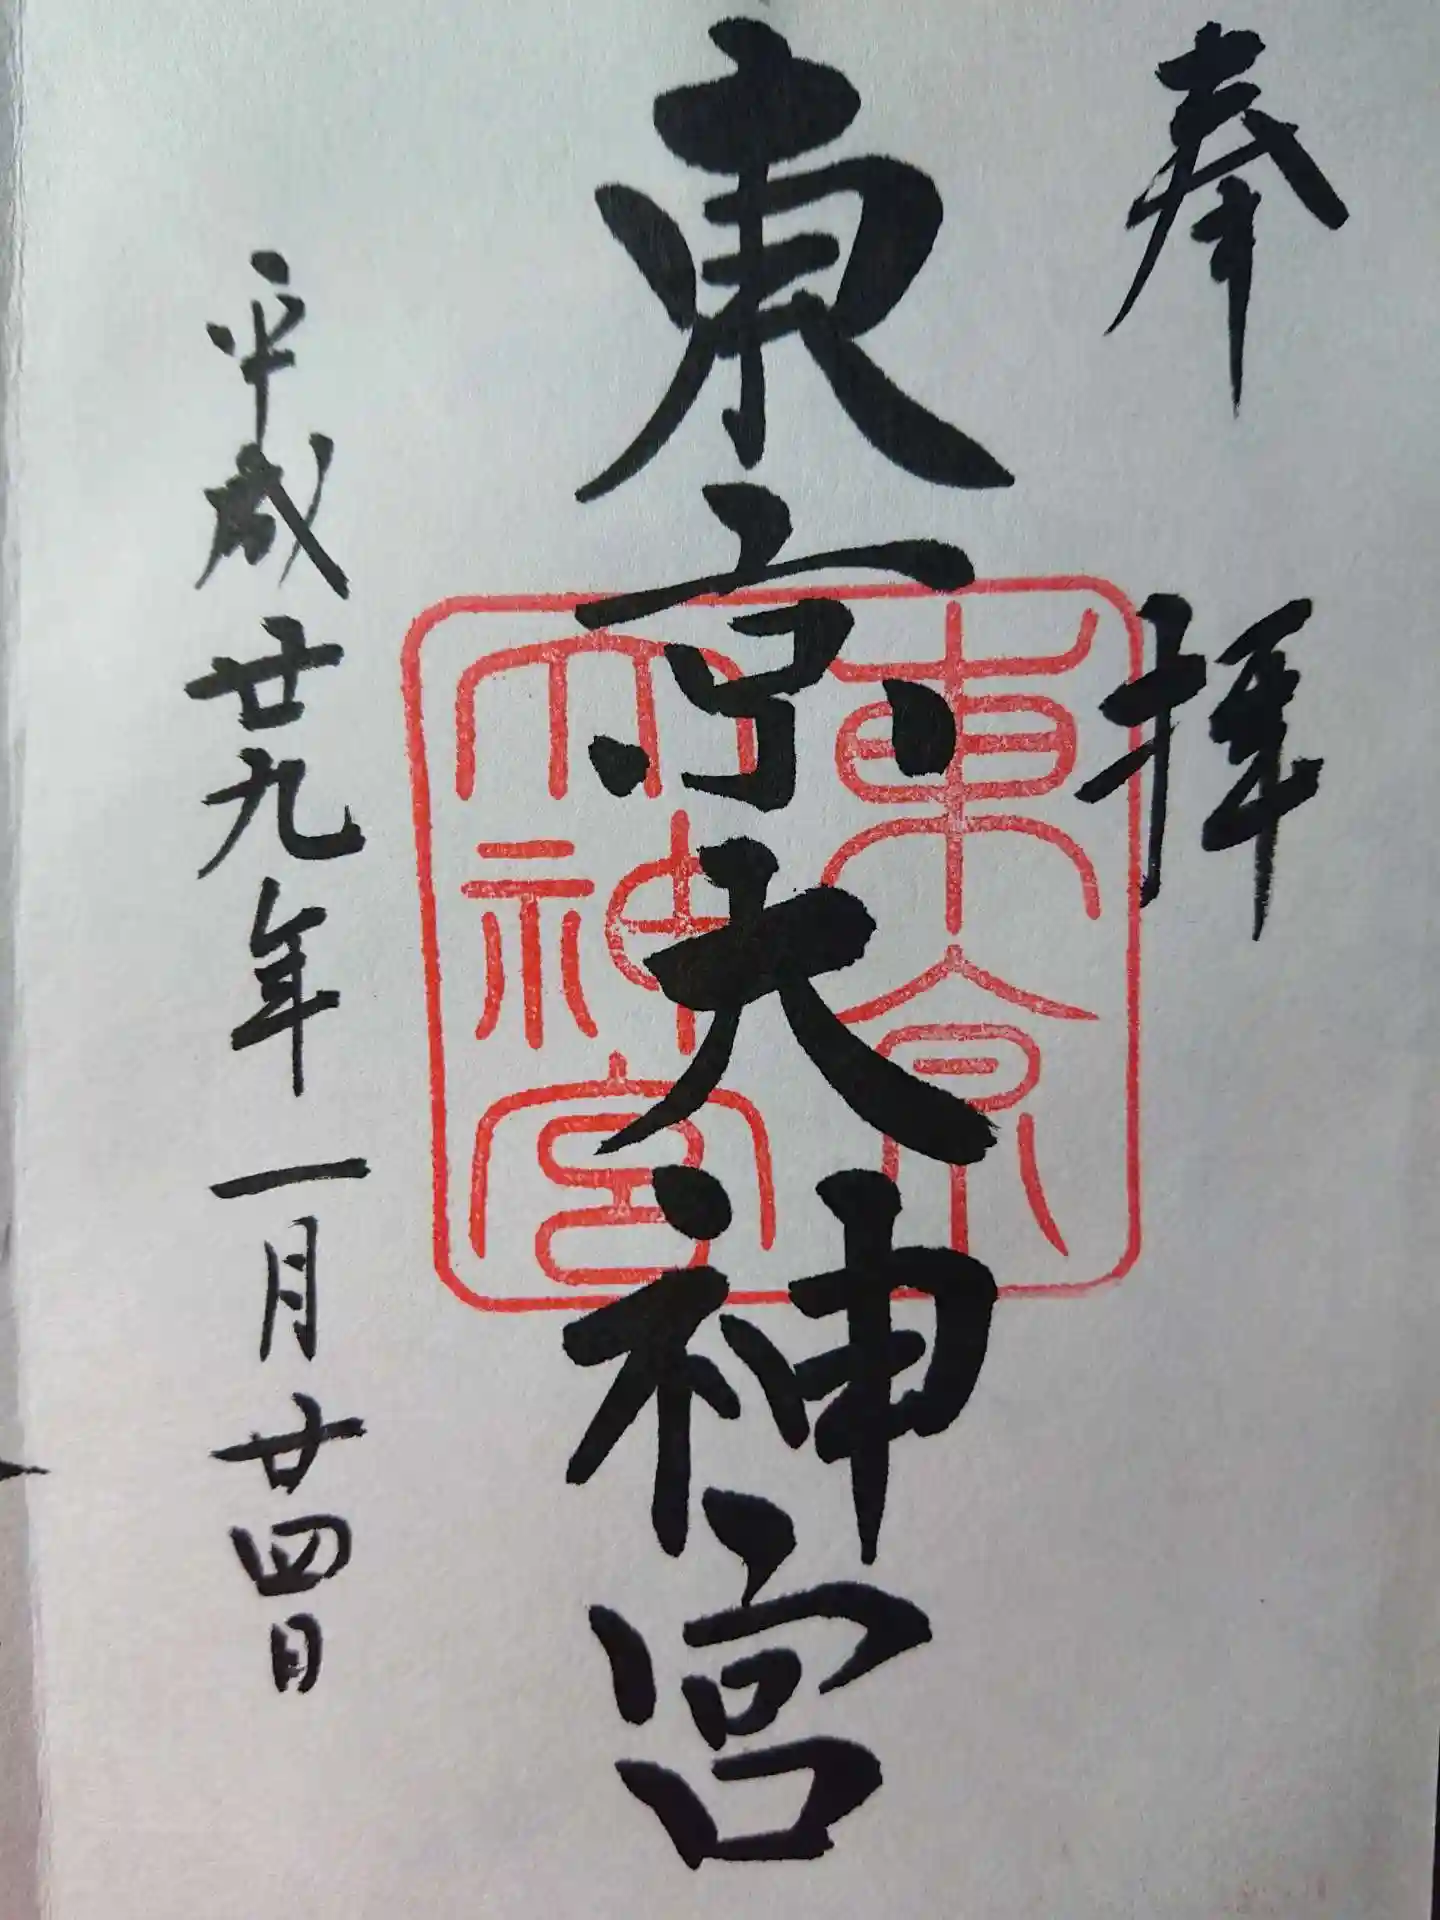 奉拝
東京大神宮
東京
大神宮
平成廿九年一月廿四日